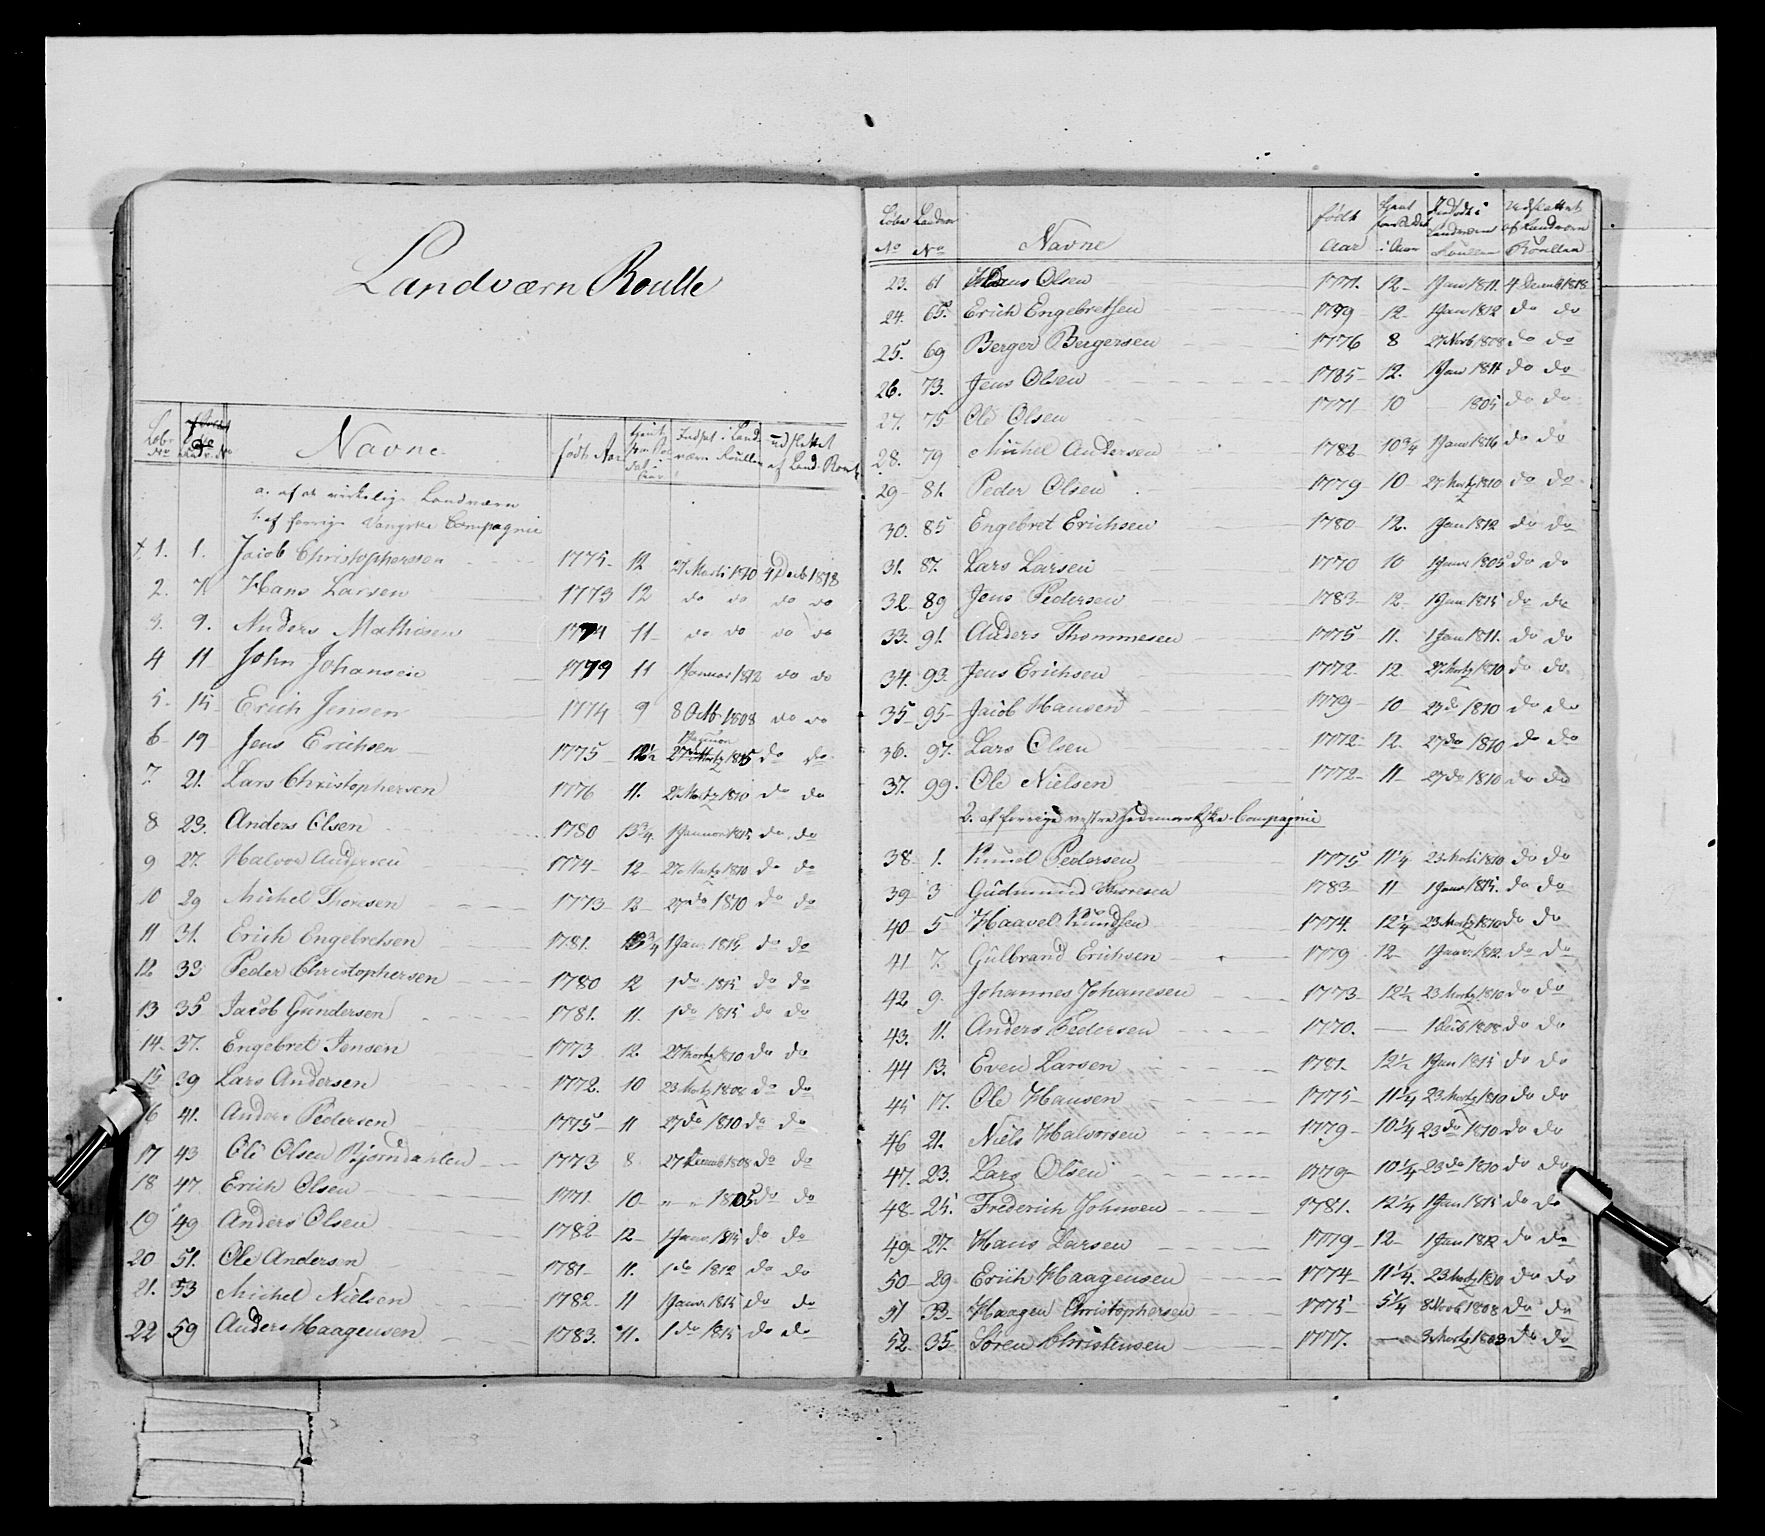 Landværn Roulle
Løbe No No Navne født Aar udslettet af Land. Roul
a. af de virkelige Landværn
1. af forrige Vangske Compagnie
1. 1. Jacob Christophersen 1775 12 27 Marti 1810 4 Decb 1818
2. 7 Hans Larsen 1773 12 do do do do
3. 9. Anders Mathisen 1774 11 do do do do
4 11 John Johansen 1779 11 1 Januar 1812 do do
5 15 Erich Jensen 1774 9 8 Octb 1808 do do
6 19 Jens Erichsen 1775 12½ 27 1815 do do
7. 21. Lars Christophersen 1776 11. 27 Martz 1810 do do
8 23. Anders Olsen 1780 13¾ 1 Januar 1815 do do
9 27. Halvor Andersen 1774 12 27 Martz 1810 do do
10 29 Michel Thoresen 1773 12 27 do 1810 do do
11 31. Erich Engebretsen 1781. 1 Janr 1815 do do
12 33 Peder Christophersen 1780 12 1 do 1815 do do
13 35 Jacob Gundersen 1781. 11. 1 do 1815 do do
14. 37. Engebret Jensen 1773 12 27 Martz 1810 do do
15 39 Lars Andersen 1772. 10 23 Martz 1808 do do
16 41. Anders Pedersen 1775 11 27 do 1810 do do
17 43 Ole Olsen Bjørndahlen 1773 8 27 Decemb 1808 do do
18 47 Erich Olsen 1771. 10 " " 1805 do do
19 49 Anders Olsen 1782 12 1 Janr 1815 do do
20 51. Ole Andersen 1781 11. 1 do 1812 do do
21. 53 Michel Nielsen 1782 11 1 Janr 1815 do do
22 59 Anders Haagensen 1783. 11. 1 do 1815 do do
Løbe No Landvær No Navne født Aar i Aar Indsadt i Landværn Roullen Udslettet af Landværn Roullen
23. 61 Hans Olsen 1771. 12 1 Janr 1811. 4 Decemb 1818
24. 65. Erich Engebretsen 1779 12 1 Janr 1812 do do
25. 69 Berger Bergersen 1776 8 27 Novb 1808 do do
26. 73. Jens Olsen 1785 12. 1 Janr 1811 do do
27. 75 Ole Olsen 1771 10 1805 do do
28. 79 Michel Andersen 1782 10¾ 1 Janr 1816 do do
29 81. Peder Olsen 1779 10 27 Martz 1810 do do
30. 85 Engebret Erichsen 1780 12. 1 Janr 1812 do do
31. 87. Lars Larsen 1770 10 1 Janr 1805 do do
32. 89 Jens Pedersen 1783 12 1 Janr 1815 do do
33. 91. Anders Thommesen 1775 11. 1 Janr 1811. do do
34. 93. Jens Erichsen 1772. 12 27 Martz 1810 do do
35 95 Jacob Hansen 1779 10 27 do 1810 do do
36. 97. Lars Olsen 1772 12. 27 do 1810 do do
37. 99. Ole Nielsen 1772 11 27 do 1810 do do
2. af forrige vestre Hedemarkske Compagnie
38 1. Knud Pedersen 1775 11¼ 23 Marti 1810 do do
39 3 Gudmund Thoresen 1783 11 1 Janr 1815. do do
40 5 Haavel Knudsen 1774. 12¼ 23 Martz 1810 do do
41 7. Gulbrand Erichsen 1779 12 1 Janr. 1812. do do
42 9. Johannes Johanesen 1773 12½ 23 Martz 1810 do do
43. 11. Anders Pedersen 1770. — 1 Decb 1808 do do
44 13. Even Larsen 1781. 12½ 1 Janr 1815 do do
45 17. Ole Hansen 1775 11¼ 23 Martz 1810 do do
46 21. Niels Halvorsen 1779 10¼ 23 do 1810 do do
47. 23. Lars Olsen 1779 10¼ 23 do 1810 do do
48 25. Frederich Johnsen 1781. 12¼ 1 Janr 1815 do do
49 27. Hans Larsen 1779 12 1 Janr 1812 do do
50 29 Erich Haagensen 1774 11¼. 23 Martz 1810 do do
51 33 Haagen Christophersen 1775 5¼ 8 Novb 1808 do do
52. 35 Søren Christensen 1777. — 3 Martz 1803 do do